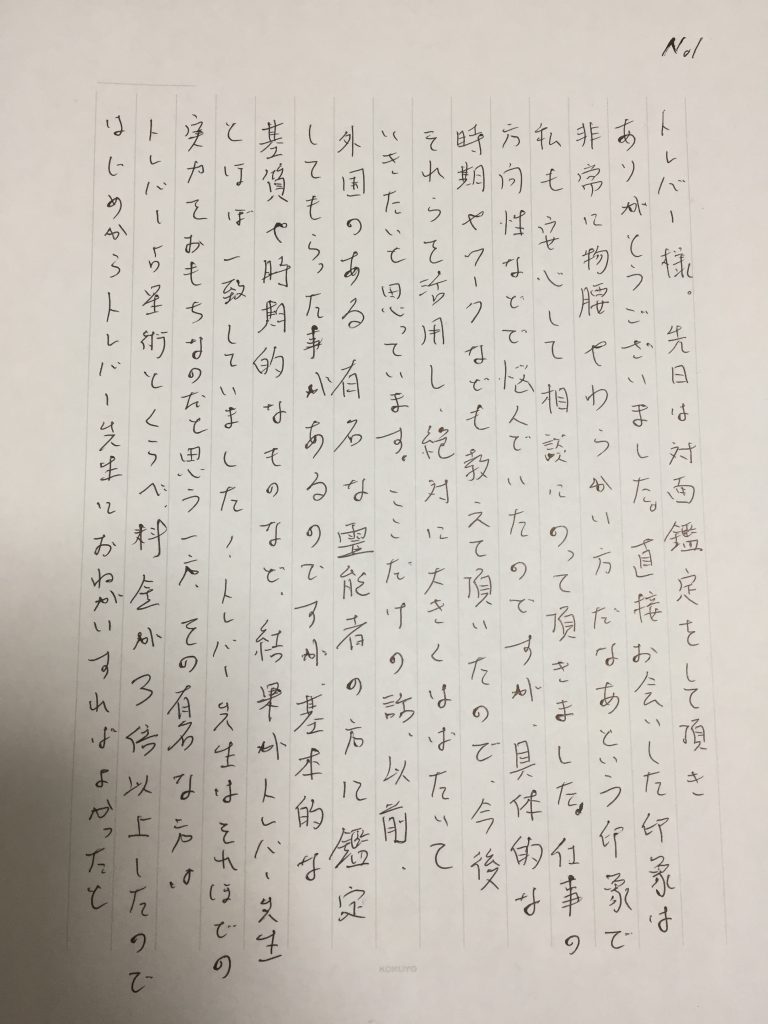 No1
トレバー様。先日は対面鑑定をして頂き
ありがとうございました。直接お会いした印象は
非常に物腰やわらかい方だなあという印象で
私も安心して相談にのって頂きました。仕事の
方向性などで悩んでいたのですが、具体的な
時期やワークなども教えて頂いたので、今後
それらを活用し、絶対に大きくはばたいて
いきたいと思っています。ここだけの話、以前、
外国のある有名な霊能者の方に鑑定
してもらった事があるのですが、基本的な
基質や時期的なものなど、結果がトレバー先生
とほぼ一致していました！トレバー先生はそれほどの
実力をおもちなのだと思う一方、その有名な方は
トレバー占星術とくらべ、料金が3倍以上したので
はじめからトレバー先生におねがいすればよかったと
KOKUYO